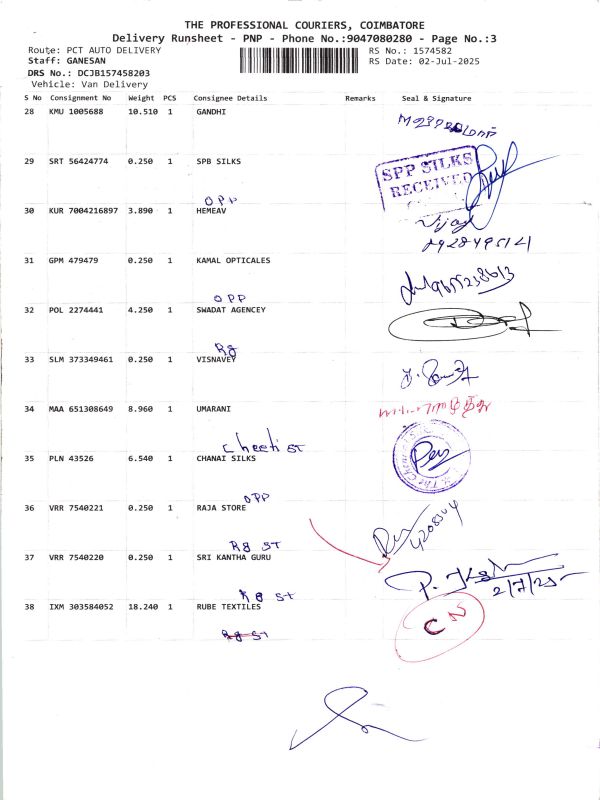 THE PROFESSIONAL COURIERS, COIMBATORE
Delivery Runsheet - PNP - Phone No.:9047080280 - Page No.:3
Route: PCT AUTO DELIVERY RS No.: 1574582
Staff: GANESAN RS Date: 02-Jul-2025
DRS No.: DCJB157458203
Vehicle: Van Delivery
S No Consignment No Weight PCS Consignee Details Remarks Seal & Signature
28 KMU 1005688 10.510 1 GANDHI
29 SRT 56424774 0.250 1 SPB SILKS
SPP SILKS
RECEIVED
OPP
30 KUR 7004216897 3.890 1 HEMEAV
Vijay
31 GPM 479479 0.250 1 KAMAL OPTICALES
OPP
32 POL 2274441 4.250 1 SWADAT AGENCEY
Rg
33 SLM 373349461 0.250 1 VISNAVEY
34 MAA 651308649 8.960 1 UMARANI
Cheeti ST
35 PLN 43526 6.540 1 CHANAI SILKS
OPP
36 VRR 7540221 0.250 1 RAJA STORE
Rg ST
37 VRR 7540220 0.250 1 SRI KANTHA GURU
2/7/25
Rg ST
38 IXM 303584052 18.240 1 RUBE TEXTILES
CN
Rg ST